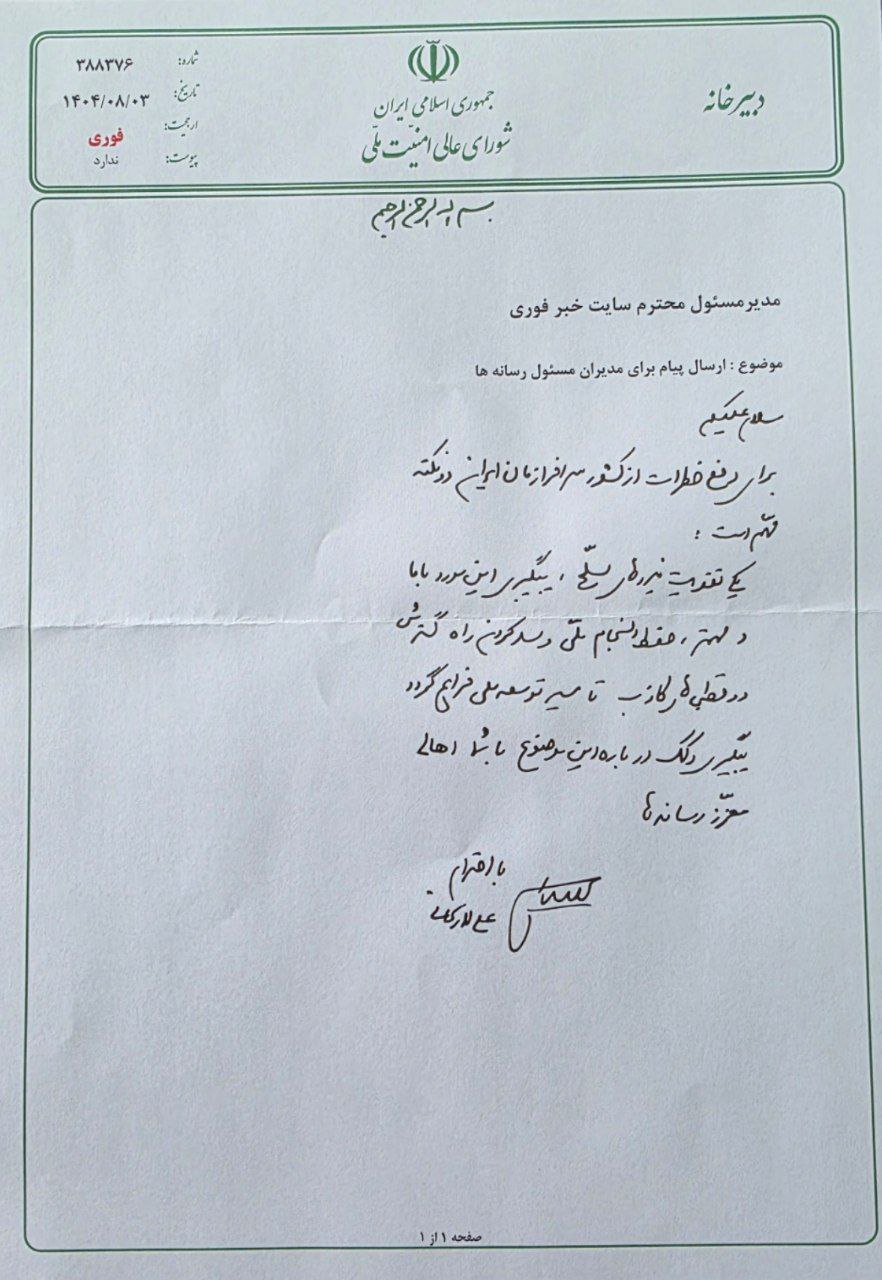 دبیرخانه
جمهوری اسلامی ایران
شورای عالی امنیّت ملّی
شماره: ۳۸۸۳۷۶
تاریخ: ۱۴۰۴/۰۸/۰۳
ارجحیت: فوری
پیوست: ندارد
بسم الله الرحمن الرحیم
مدیرمسئول محترم سایت خبر فوری
موضوع : ارسال پیام برای مدیران مسئول رسانه ها
سلام علیکم
برای رفع خطرات از کشور سرافرازمان ایران دو نکته
مهّم است :
یکی تقویت نیروهای مسلّح ، پیگیری این مورد با ما
و مهمتر ، حفظ انسجام ملّی و سد کردن راه گسترش
دوقطبی‌های کاذب تا مسیر توسعه ملی فراهم گردد
پیگیری و کمک درباره این موضوع با شما اهالی
معزّز رسانه‌ها
با احترام
علی لاریجانی
صفحه ۱ از ۱